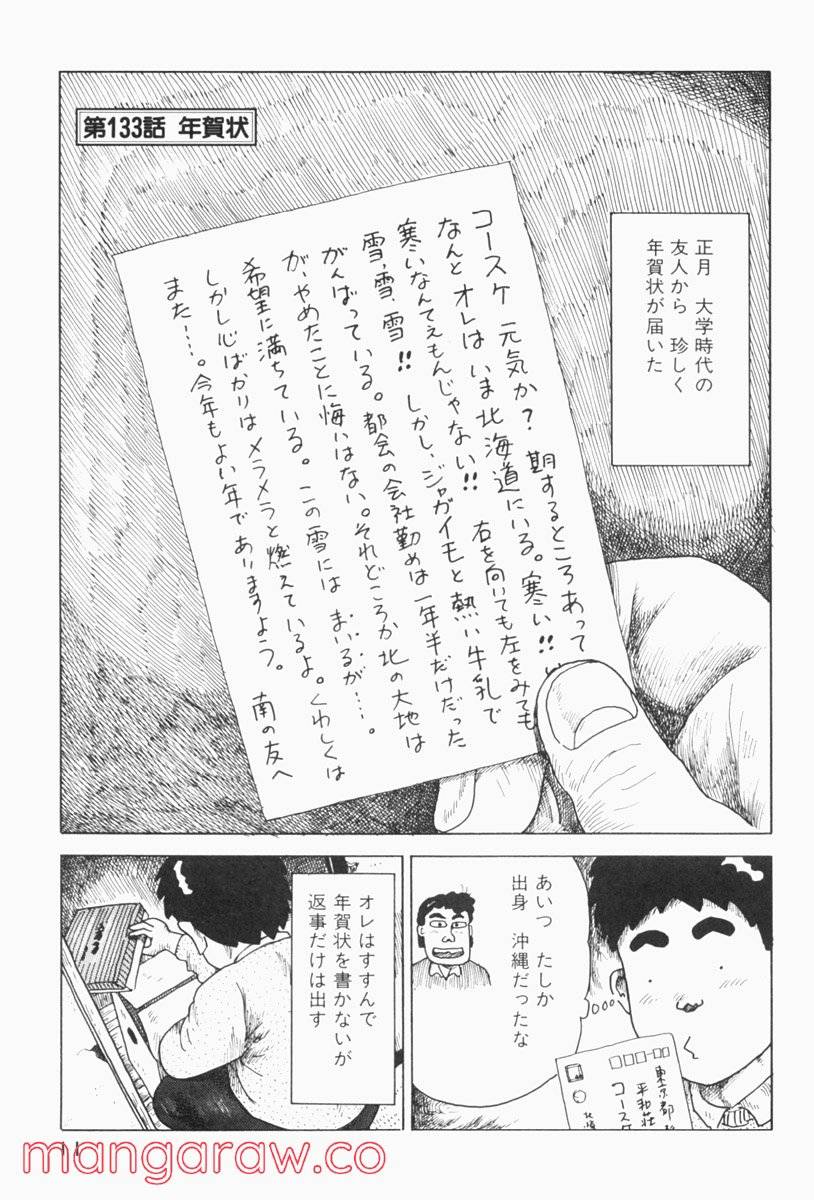 第133話 年賀状
正月 大学時代の
友人から 珍しく
年賀状が届いた
コースケ 元気か? 期するところあって
なんと オレは いま北海道にいる。寒い!!
寒いなんてえもんじゃない!! 右を向いても左をみても
雪、雪、雪!! しかし、ジャガイモと 熱い牛乳で
がんばっている。都会の会社勤めは一年半だけだった
が、やめたことに悔いはない。それどころか北の大地は
希望に満ちている。この雪には まいるが……。
しかし心ばかりはメラメラと燃えているよ。くわしくは
また……。今年もよい年でありますよう。 南の友へ
あいつ たしか
出身 沖縄だったな
東京都
平和荘
コースケ
オレはすすんで
年賀状を書かないが
返事だけは出す
11
mangaraw.co